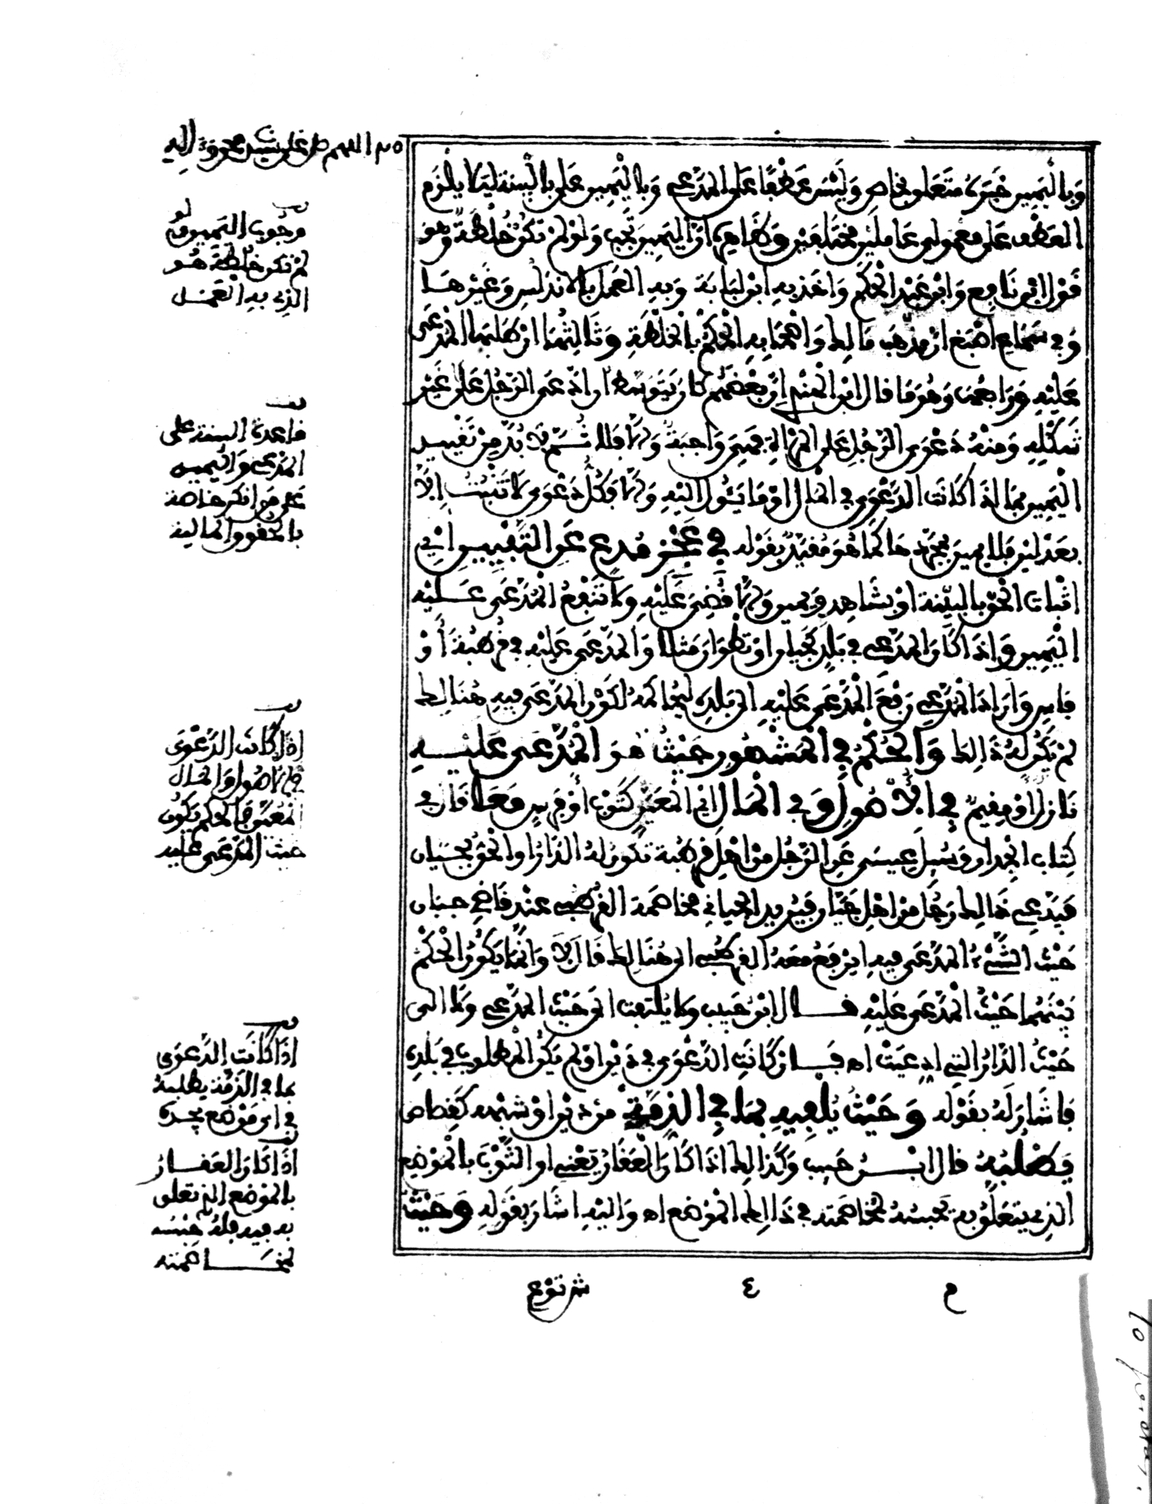 ٢٥ اللهم صل على سيدنا محمد وآله
وباليمين خبره متعلق بخاص وليس عطفا على المدعي وباليمين على بالبينة ليلا يلزم
العطف على معمولي عاملين مختلفين وظاهره ان اليمين تجب ولو لم تكن خلطة وهو
قول ابن نافع وابن عبد الحكم واخذ به ابن لبابة وبه العمل بالاندلس وغيرها
وفي سماع اصبغ ان مذهب مالك واصحابه الحكم بالخلطة وثالثها ان طلبها المدعى
عليه وراجعه وهو ما قال ابن الهندي ان بعضهم كان يتوسط ان ادعى الرجل على غير
شكله ومنه دعوى الرجل على المرأة يمين واجبة والا فلا ثم لا بد من تقييد
اليمين بما اذا كانت الدعوى في المال او ما يئول اليه والا فكل دعوى لا تثبت الا
بعدلين فلا يمين بمجردها كما هو مفيد بقوله في عجز مدع عن التبيين اي
اثبات الحق بالبينة او بشاهد ويمين والا قضي عليه ولا تنفع المدعى عليه
اليمين واذا كان المدعي في بلد كجيان او تطوان مثلا والمدعى عليه في قرطبة او
فاس واراد المدعي رفع المدعى عليه الى بلده ليخاصمه لكون المدعى فيه هنالك
لم يكن له ذلك والحكم في المشهور حيث هو المدعى عليه
نازل او مقيم في الاصول وفي المال اي المعين كثوب او فرس معا قال في
كتاب الجدار وسئل عيسى عن الرجل من اهل قرطبة تكون له الدار او الحق بجيان
فيدعي ذلك رجل من اهل جيان فيريد الجياني مخاصمة القرطبي عند قاضي جيان
حيث الشيء المدعى فيه ايرفع معه القرطبي الى هنالك قال لا وانما يكون الحكم
بينهما حيث المدعى عليه قال ابن حبيب ولا يلتفت الى حيث المدعي ولا الى
حيث الدار التي ادعيت اه فان كانت الدعوى في دين او لم يكن المطلوب في بلده
فاشار له بقوله وحيث يلفيه بما في الذمة من دين او شبهه كقصاص
يطلبه قال ابن حبيب وكذلك اذا كان العقار يعني او الثوب بالموضع
الذي يتعلق به بحبسه لمخاصمته في ذلك الموضع اه واليه اشار بقوله وحيث
قف
وجوب اليمين ولو
لم تكن خلطة هو
الذي به العمل
قف
قاعدة البينة على
المدعي واليمين
على من انكر خاصة
بالحقوق المالية
قف
اذا كانت الدعوى
في الاصول والمال
المعين فالحكم يكون
حيث المدعى عليه
قف
اذا كانت الدعوى
بما في الذمة يطلبه
في اي موضع يجده
قف
اذا كان العقار
بالموضع الذي تعلق
به فيه فله حبسه
لمخاصمته
م ٤ ش توع